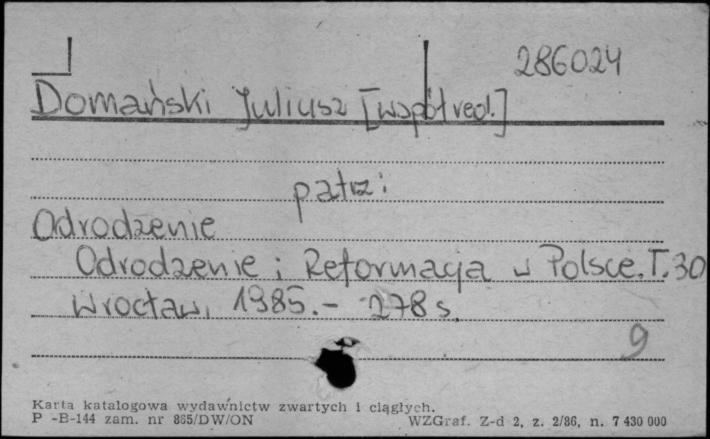 286024
Domański Juliusz [współred.]
patrz:
Odrodzenie
Odrodzenie i Reformacja w Polsce. T. 30
Wrocław, 1985. - 278 s.
9
Karta katalogowa wydawnictw zwartych i ciągłych.
P -B-144 zam. nr 865/DW/ON WZGraf. Z-d 2, z. 2/86, n. 7 430 000